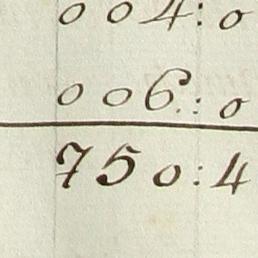 0 0 4 : 0
0 0 6 : 0
7 5 0 : 4